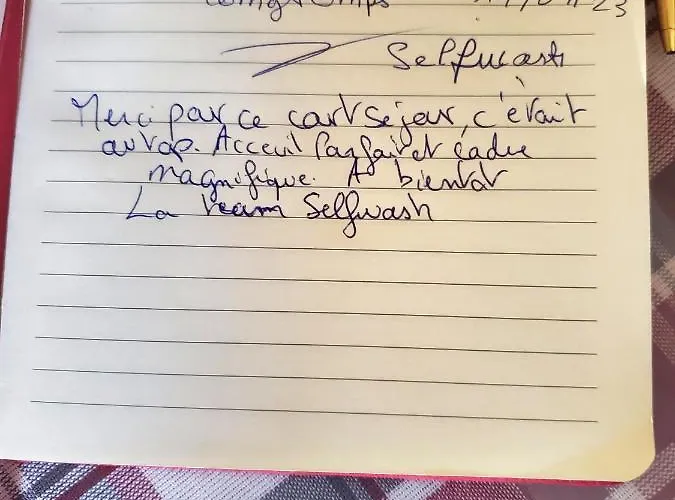 longtemps
23
Selfwash
Merci par ce court séjour, c'était
au top. Acceuil Parfait et cadre
magnifique. A bientot
La team Selfwash